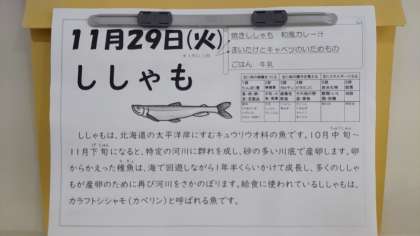 11月29日(火)
ししゃも
焼きししゃも 和風カレー汁
まいたけとキャベツのいためもの
ごはん 牛乳
ししゃもは、北海道の太平洋岸にすむキュウリウオ科の魚です。10月中旬～
11月下旬になると、特定の河川に群れを成し、砂の多い川底で産卵します。卵
からかえった稚魚は、海で回遊しながら1年半くらいかけて成長し、多くのしし
ゃもが産卵のために再び河川をさかのぼります。給食に使われているししゃもは、
カラフトシシャモ（カペリン）と呼ばれる魚です。